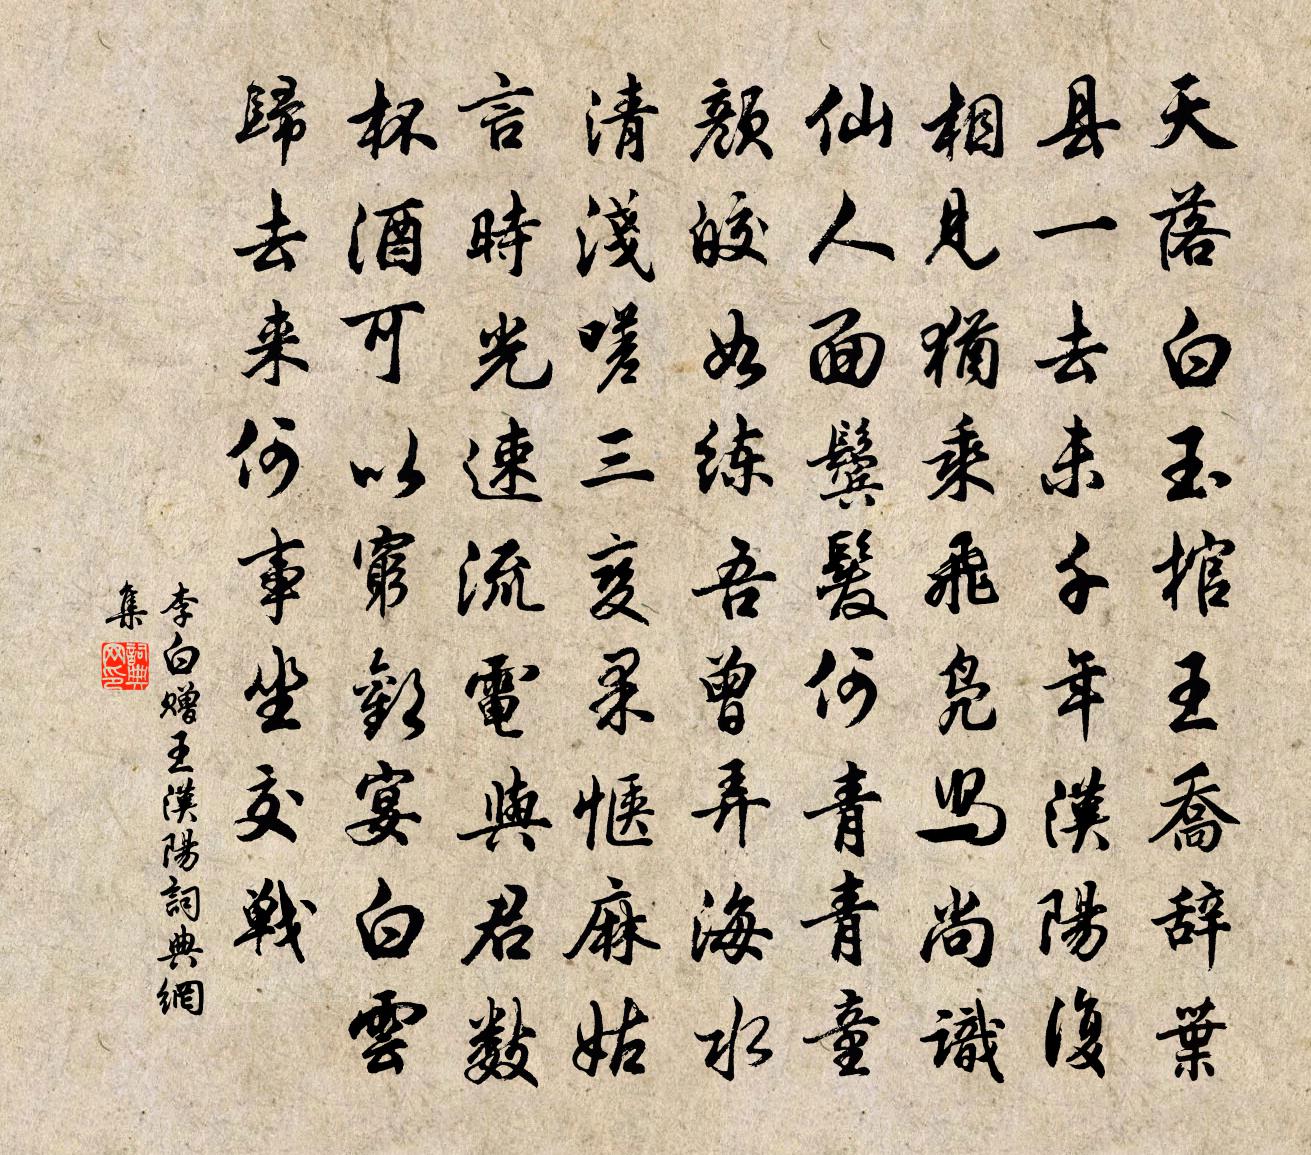 天落白玉棺王喬辞葉
县一去未千年漢陽復
相見猶乘飛鳧舃尚識
仙人面鬓髮何青青童
颜皎如练吾曾弄海水
清淺嗟三变果惬麻姑
言時光速流電與君数
杯酒可以窮歡宴白雲
歸去来何事坐交戰
李白赠王漢陽詞典網
集
詞典网印